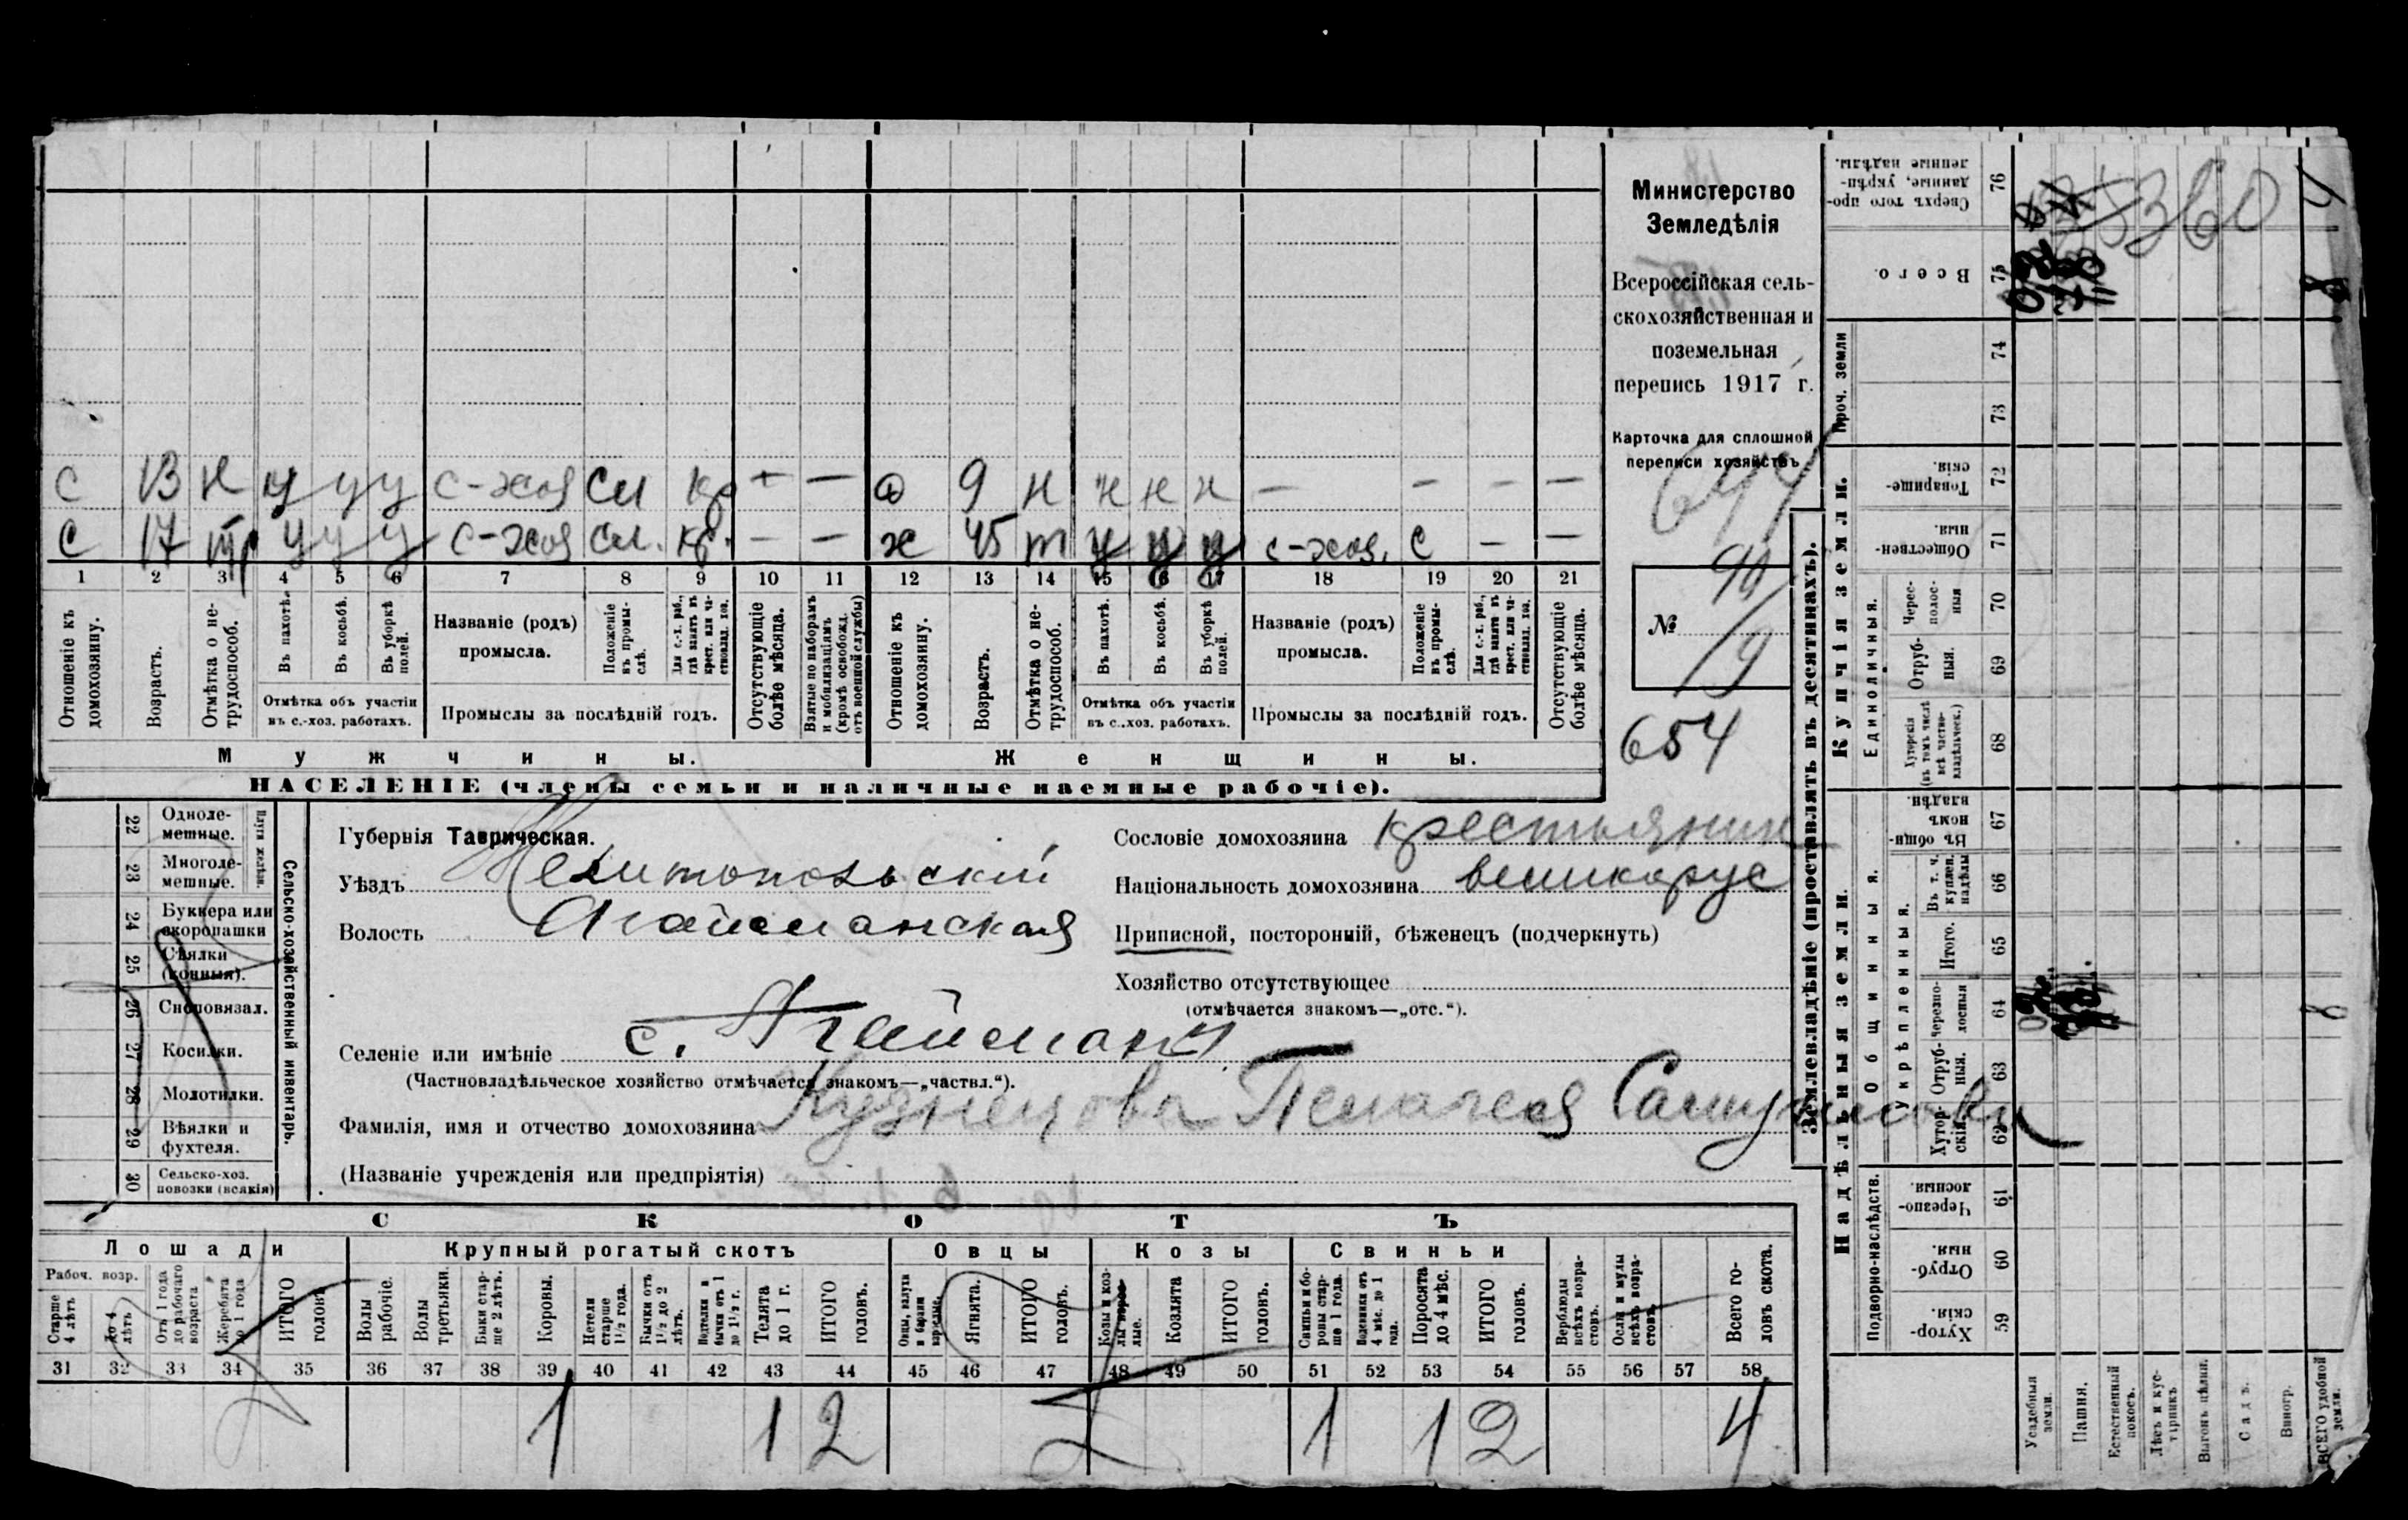 С 13 н у у у с-хоз сл кр — — д 9 н н н н — — — —
С 17 тр у у у с-хоз сл. кр. — — ж 45 т у у у с-хоз. с — —
1 2 3 4 5 6 7 8 9 10 11 12 13 14 15 16 17 18 19 20 21
Отношеніе къ домохозяину.
Возрастъ.
Отмѣтка о не-трудоспособ.
Въ пахотѣ.
Въ косьбѣ.
Въ уборкѣ полей.
Отмѣтка объ участіи
въ с.-хоз. работахъ.
Названіе (родъ)
промысла.
Положеніе въ промы-слѣ.
Для с.-х. раб., гдѣ занятъ въ крест. или ча-стновлад. хоз.
Промыслы за послѣдній годъ.
Отсутствующіе болѣе мѣсяца.
Взятые по наборамъ и мобилизаціямъ (кромѣ освобожд. отъ военной службы)
Отношеніе къ домохозяину.
Возрастъ.
Отмѣтка о не-трудоспособ.
Въ пахотѣ.
Въ косьбѣ.
Въ уборкѣ полей.
Отмѣтка объ участіи
въ с.-хоз. работахъ.
Названіе (родъ)
промысла.
Положеніе въ промы-слѣ.
Для с.-х. раб., гдѣ занятъ въ крест. или ча-стновлад. хоз.
Промыслы за послѣдній годъ.
Отсутствующіе болѣе мѣсяца.
Мужчины.
Женщины.
НАСЕЛЕНІЕ (члены семьи и наличные наемные рабочіе).
Министерство
Земледѣлія
Всероссійская сель-
скохозяйственная и
поземельная
перепись 1917 г.
Карточка для сплошной
переписи хозяйствъ
№
654
22 Одноле-мешные.
23 Многоле-мешные.
Плуги желѣзн.
24 Буккера или скоропашки
25 Сѣялки (конныя).
26 Сноповязал.
27 Косилки.
28 Молотилки.
29 Вѣялки и фухтеля.
30 Сельско-хоз. повозки (всякія)
Сельско-хозяйственный инвентарь.
Губернія Таврическая.
Уѣздъ Мелитопольскій
Волость Агайманская
Селеніе или имѣніе с. Агайманы
(Частновладѣльческое хозяйство отмѣчается знакомъ—„частвл.“).
Фамилія, имя и отчество домохозяина Кузнецова Пелагея
(Названіе учрежденія или предпріятія)
Сословіе домохозяина крестьянин
Національность домохозяина великорус
Приписной, посторонній, бѣженецъ (подчеркнуть)
Хозяйство отсутствующее
(отмѣчается знакомъ—„отс.“).
СКОТЪ
Лошади
Крупный рогатый скотъ
Овцы
Козы
Свиньи
Рабоч. возр.
Старше 4 лѣтъ
До 4 лѣтъ
Отъ 1 года до рабочаго возраста
Жеребята до 1 года
ИТОГО головъ
Волы рабочіе.
Волы третьяки.
Быки стар-ше 2 лѣтъ.
Коровы.
Нетели старше 1½ года.
Бычки отъ 1½ до 2 лѣтъ.
Телята до 1 г.
ИТОГО головъ.
Ягнята.
ИТОГО головъ.
Козлята
ИТОГО головъ.
Свиньи и бо-ровы стар-ше 1 года.
Поросята до 4 мѣс.
ИТОГО головъ.
Верблюды всѣхъ возра-стовъ.
Ослы и мулы всѣхъ возра-стовъ.
Всего го-ловъ скота.
31 32 33 34 35 36 37 38 39 40 41 42 43 44 45 46 47 48 49 50 51 52 53 54 55 56 57 58
1 1 2 1 1 2 4
Землевладѣніе (проставлять въ десятинахъ).
Надѣльныя земли.
Купчія земли.
Проч. земли
Подворно-наслѣдств.
Общинныя.
Укрѣпленныя.
Единоличныя.
59 Хутор-скія.
60 Отруб-ныя.
61 Черезпо-лосныя.
62 Хутор-скія.
63 Отруб-ныя.
64 Черезпо-лосныя
65 Итого.
66 Въ т. ч. куплен. надѣлы
67 Въ общин-номъ владѣн.
68 Хуторскія (въ томъ числѣ всѣ частно-владѣльческ.)
69 Отруб-ныя.
70 Черес-полос-ныя
71 Обществен-ныя.
72 Товарище-скія.
73
74
75 Всего.
76 Сверхъ того про-данные, укрѣп-ленные надѣлы.
Усадебныя земли.
Пашня.
Естественный покосъ.
Лѣсъ и кус-тарникъ
Выгонъ цѣлин.
Садъ.
Виногр.
ВСЕГО удобной земли.